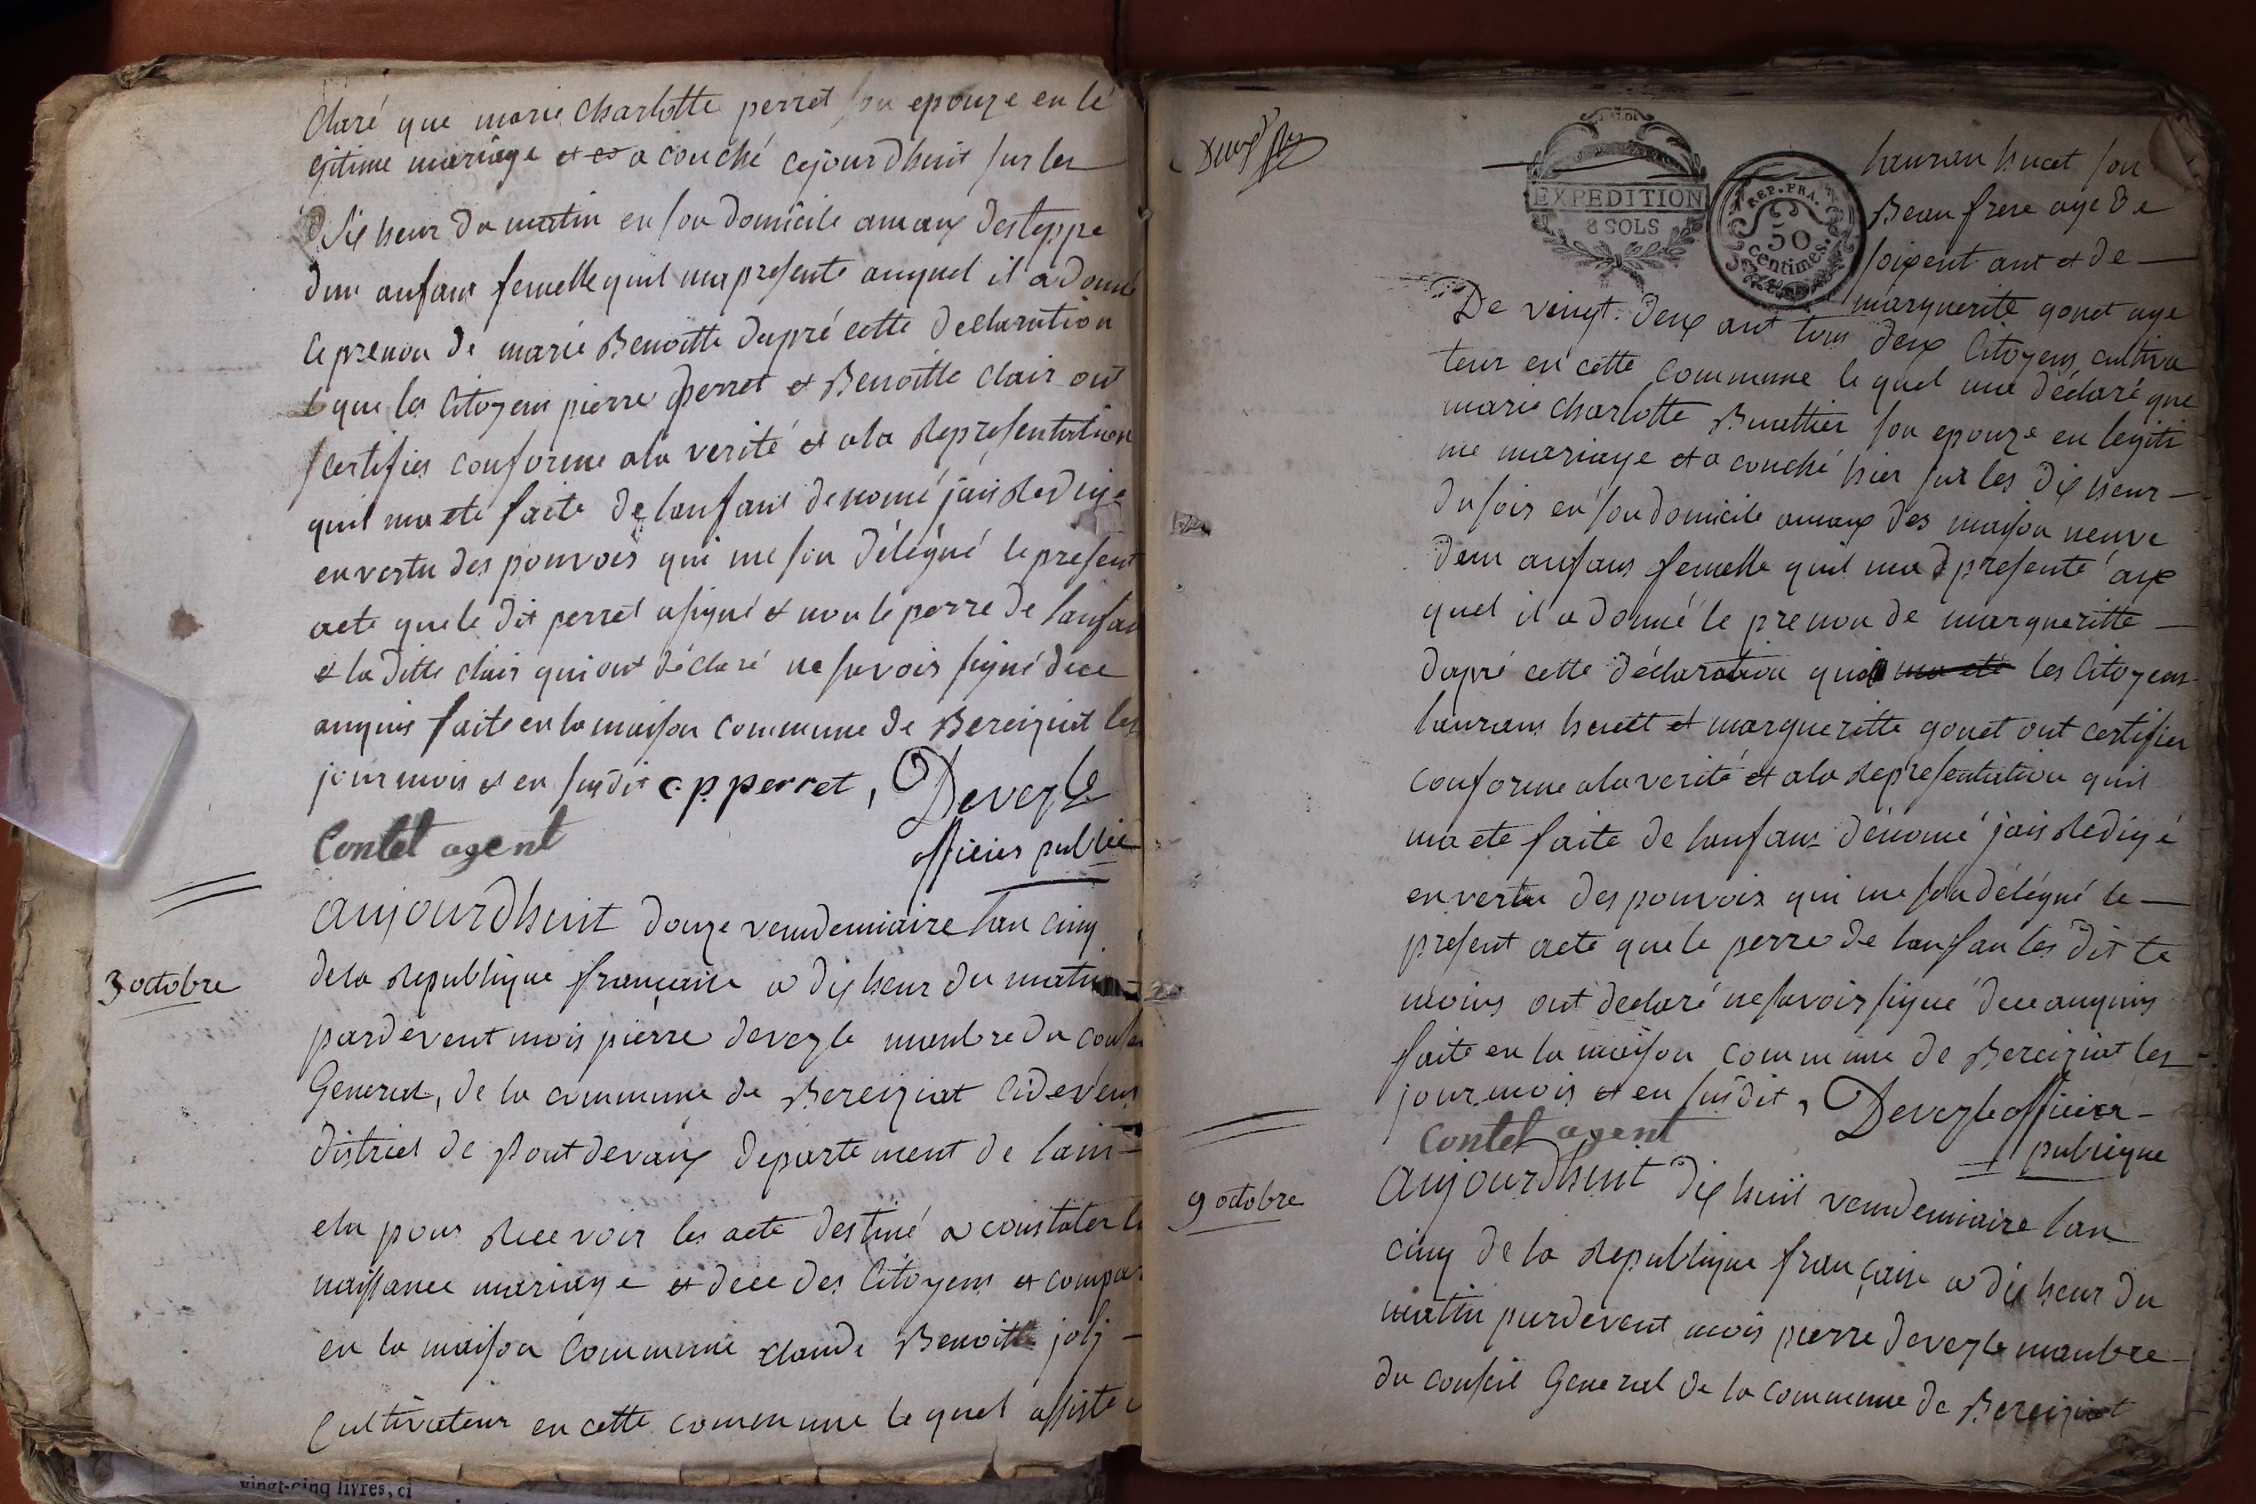 claré que marie charlotte perret son epouze en lé
gitime mariage et es a couché cejourdhuit sur les
six heur du matin en son domicile amaux desteppe
dun anfant femelle quil ma presente auquel il a donné
le prenon de marie Benoitte dapré cette declaration
que les Citoyens pierre perret et Benoitte clair ont
certifies conforme ala verité et ala Representation
quil ma eté faite de lanfant denomé jais Redigé
en vertu des pouvois qui me son délégué le present
acte que le dit perret a signé et non le perre de lanfan
et la ditte clair qui ont déclaré ne savois signé dece
anquis faite en la maison commune de Bereiziat les
jour mois et en susdit c.p perret, Devezle
Contet agent officier public
aujourdhuit douze vendemiaire lan cinq
3 octobre
dela Republique française a dix heur du matin
pardevent mois pierre devezle menbre du conse
General, de la commune de Bereiziat Cidevent
district de Pont devaux departement de lain
elu pour Recevoir les acte destiné a constater le
naissance mariage et dece des Citoyens et compar
en la maison Commune claude Benoitt joly
Cultivateur en cette commune le quel assiste
EXPEDITION
8 SOLS
REP. FRA.
50
centimes.
lauran huet son
Beau frere age de
soixent ant et de
marguerite gonet age
De veingt deux ant tous deux Citoyens cultiva
teur en cette commune le quel ma déclaré que
marie charlotte Buattier son epouze en legiti
me mariage et a couché hier sur les dix heur
du sois en son domicile amaux des maison neuve
dun anfans femelle quil ma presenté aux
quel il a donné le prenon de margueritte
dapré cette déclaration que ma eté les Citoyens
laurans huett et margueritte gonet ont certifier
conforme ala verité et ala Representation quil
ma ete faite de lanfant dénomé jais Redigé
en vertu des pouvois qui me son délégué le
present acte que le perre de lanfan les dit te
moins ont declaré ne savois signé dece anquis
faite en la maison commune de Bereiziat les
jour mois et en susdit, Devezle officier
Contet agent publique
aujourdhuit dix huit vendemiaire lan
9 octobre
cinq de la Republique française a dix heur du
matin pardevent mois pierre devezle manbre
du conseil General de la commune de Bereiziat
vingt-cinq livres, ci